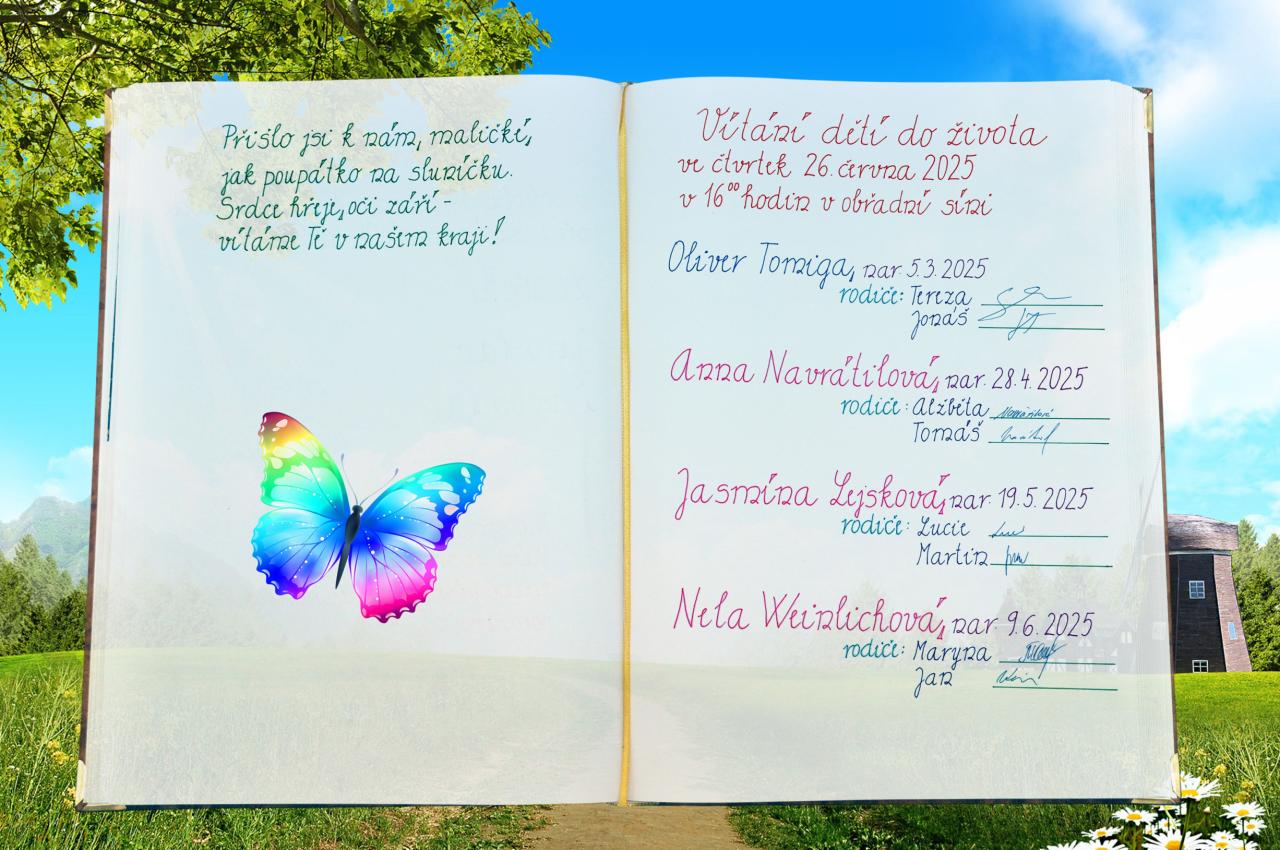 Přišlo jsi k nám, maličké,
jak poupátko na sluníčku.
Srdce hřeje, oči září -
vítáme Tě v našem kraji!
Vítání dětí do života
ve čtvrtek 26. června 2025
v 16⁰⁰ hodin v obřadní síni
Oliver Tomiga, nar. 5.3.2025
rodiče: Tereza
Jonáš
Anna Navrátilová, nar. 28.4.2025
rodiče: Alžběta
Tomáš
Jasmína Lejsková, nar. 19.5.2025
rodiče: Lucie
Martin
Nela Weinlichová, nar. 9.6.2025
rodiče: Maryna
Jan